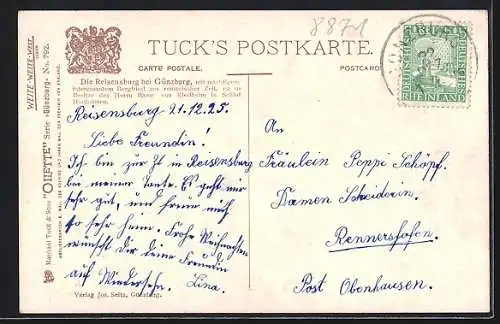 8871
TUCK'S POSTKARTE.
CARTE POSTALE.
POSTCARD
Die Reisensburg bei Günzburg, mit mächtigem
interessantem Bergfried aus romanischer Zeit, ist im
Besitze des Herrn Baron von Riedheim in Schloß
Harthausen.
Reisensburg 21.12.25.
Liebe Freundin!
Ich bin zur Zt in Reisensburg
bei meiner Tante. Es geht mir
sehr gut, und freue mich
so sehr heim. Frohe Weihnachten
wünscht dir deine Freundin
auf Wiedersehn. Lina.
Verlag Jos. Seitz, Günzburg.
An
Fräulein Peppi Schöpf.
Damen Schneiderin.
Rennershofen.
Post Obenhausen.
DEUTSCHES REICH
RHEINLAND
WEITE-WEITE-WELT.
Raphael Tuck & Sons "OILETTE" Serie »Günzburg« No. 792.